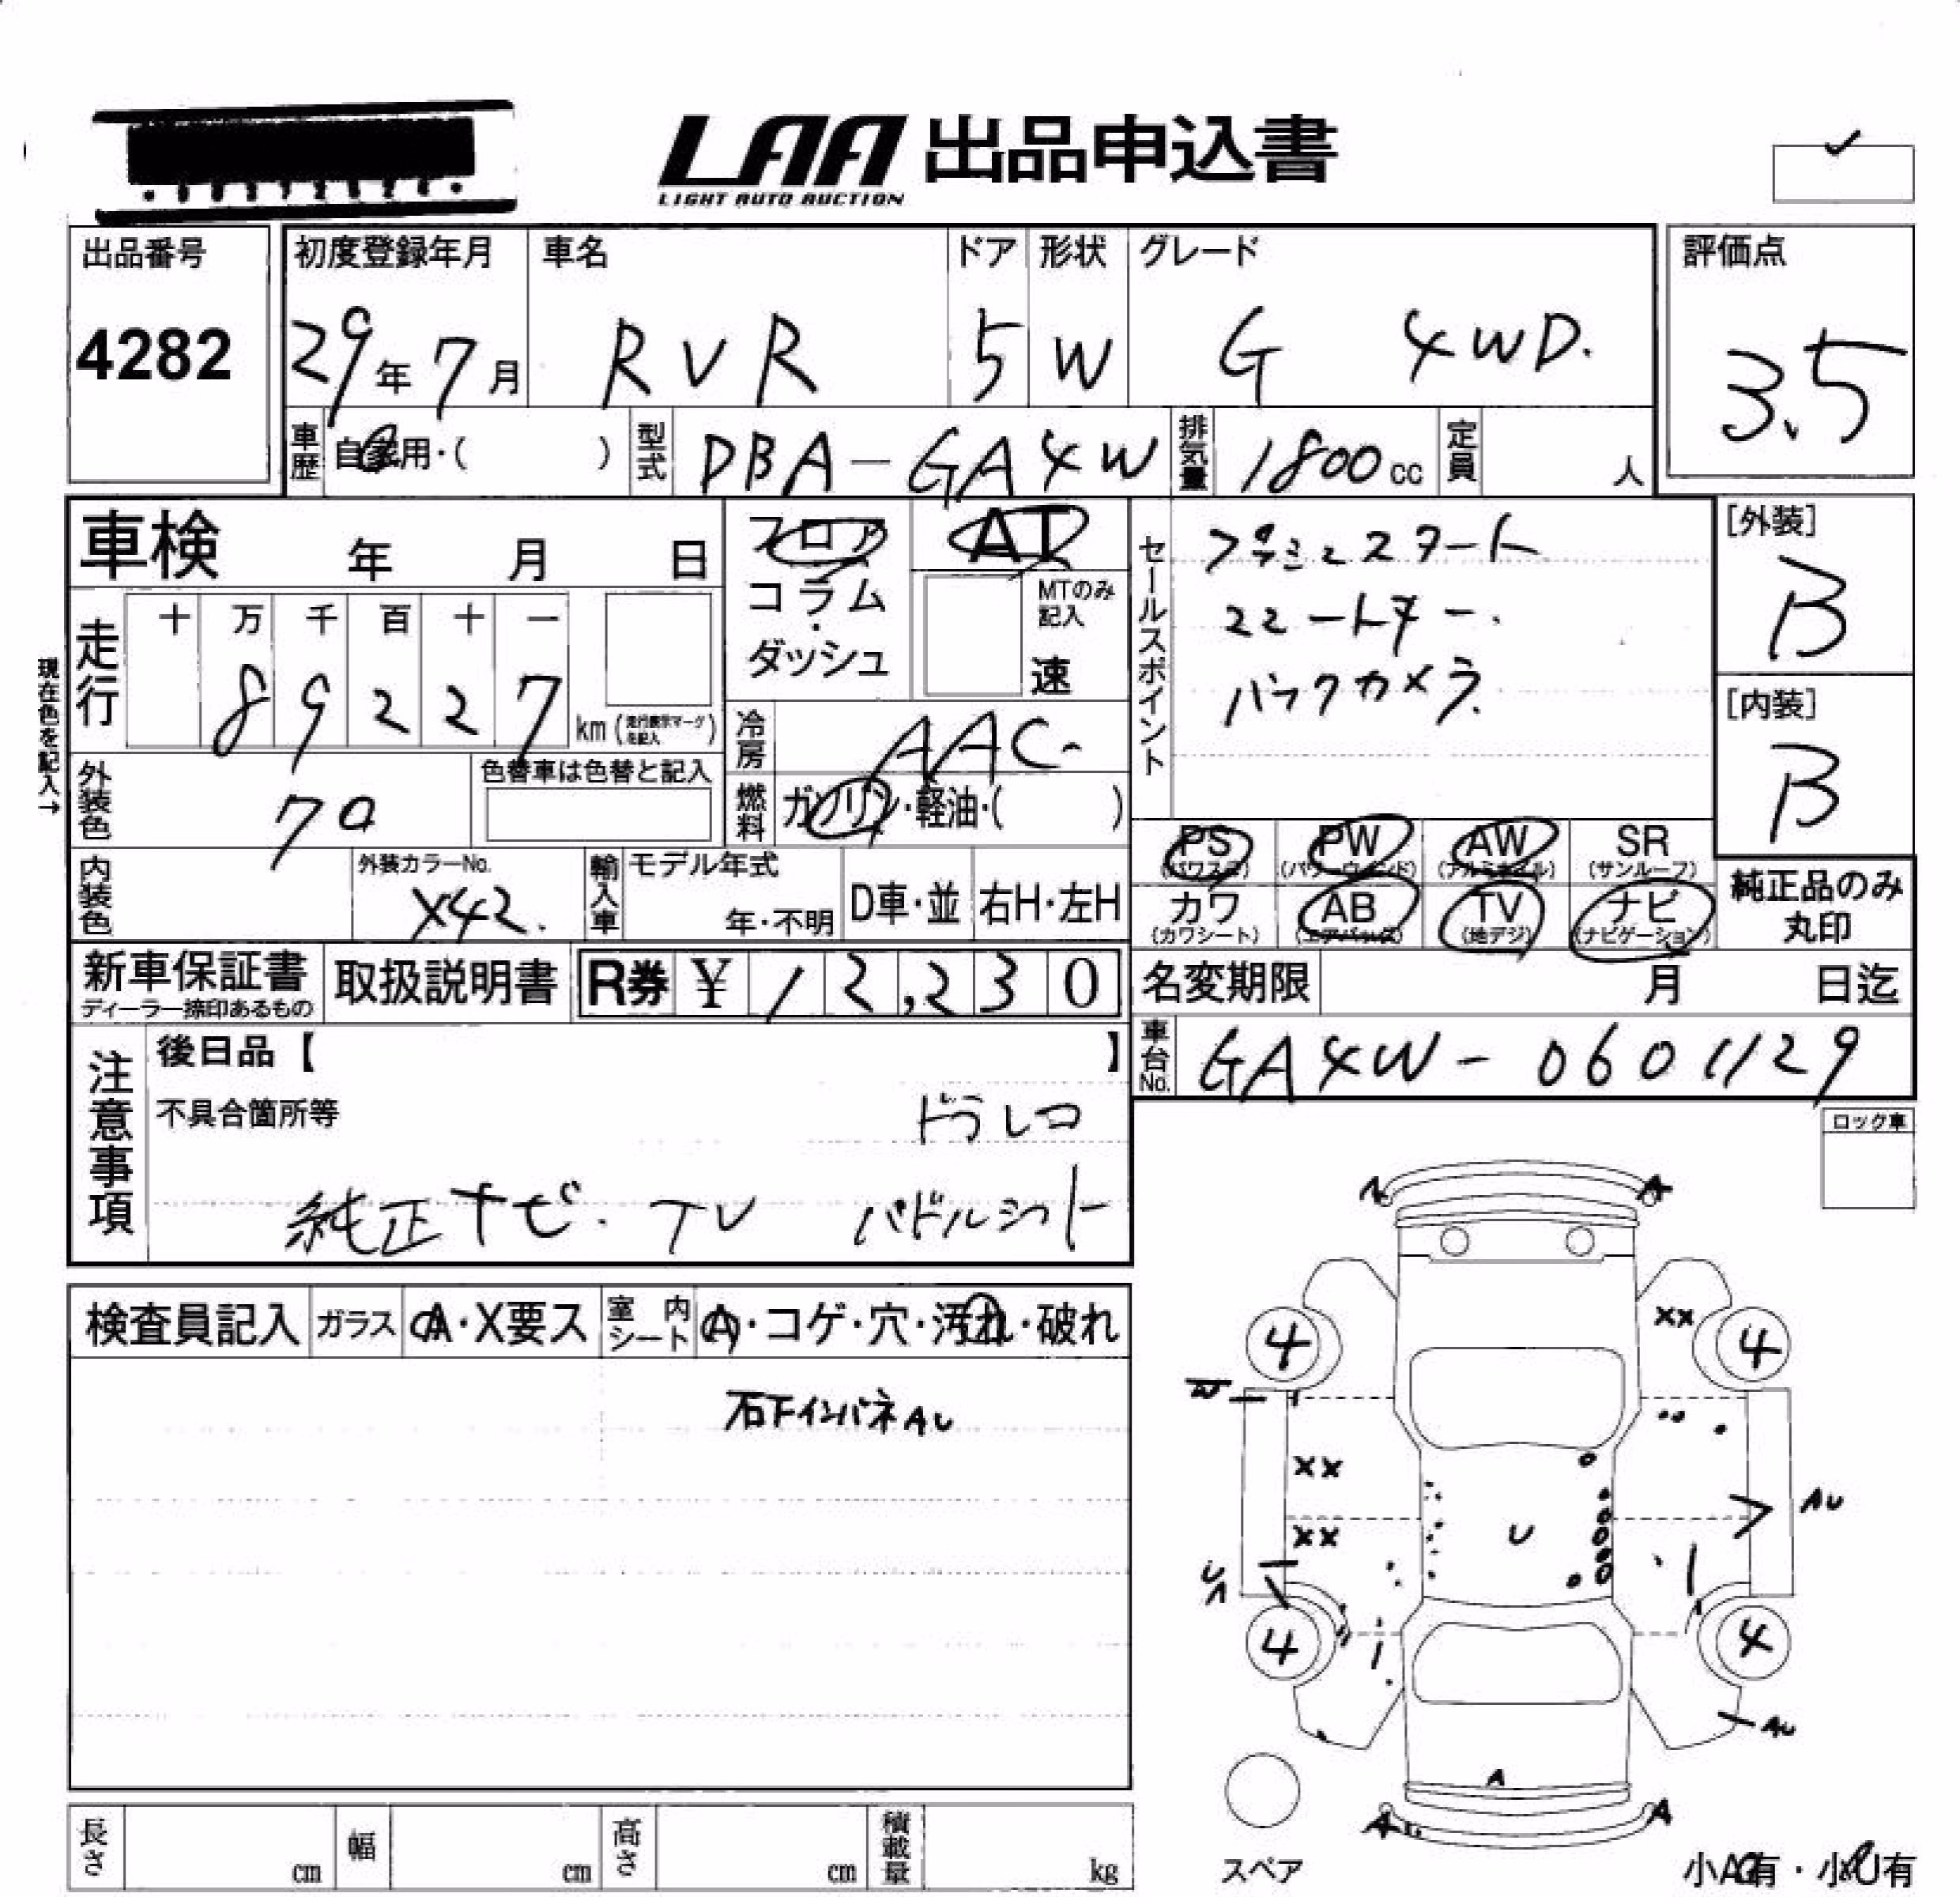 LAA 出品申込書
LIGHT AUTO AUCTION
出品番号 初度登録年月 車名 ドア 形状 グレード 評価点
4282 29年7月 RVR 5 W G 4WD. 3.5
車歴 自家用・( ) 型式 DBA-GA4W 排気量 1800cc 定員 人
車検 年 月 日 フロア AT
コラム・ダッシュ MTのみ記入 速
セールスポイント
プッシュスタート
スマートキー.
バックカメラ.
[外装] B
[内装] B
現在色を記入→
走行 十 万 千 百 十 一
8 9 2 2 7 km(走行表示マークを記入)
冷房 AAC.
外装色 クロ 色替車は色替と記入
燃料 ガソリン・軽油・( )
PS PW AW SR
(パワステ) (パワーウィンド) (アルミホイル) (サンルーフ)
カワ AB TV ナビ
(カワシート) (エアバッグ) (地デジ) (ナビゲーション)
純正品のみ丸印
内装色 外装カラーNo. X42. 輸入車 モデル年式 年・不明 D車・並 右H・左H
新車保証書 取扱説明書 R券 ¥ 12,230 名変期限 月 日迄
ディーラー捺印あるもの
車台No. GA4W-0601129
注意事項 後日品【 】
不具合箇所等 ドラレコ
純正ナビ. TV パドルシフト
ロック車
検査員記入 ガラス A・X要ス 室内シート A・コゲ・穴・汚れ・破れ
石下インパネAU
A
XX
4 4
XX
AU
XX
U
U
A
4 4
AU
A
A A
スペア
長さ cm 幅 cm 高さ cm 積載量 kg
小A有・小U有